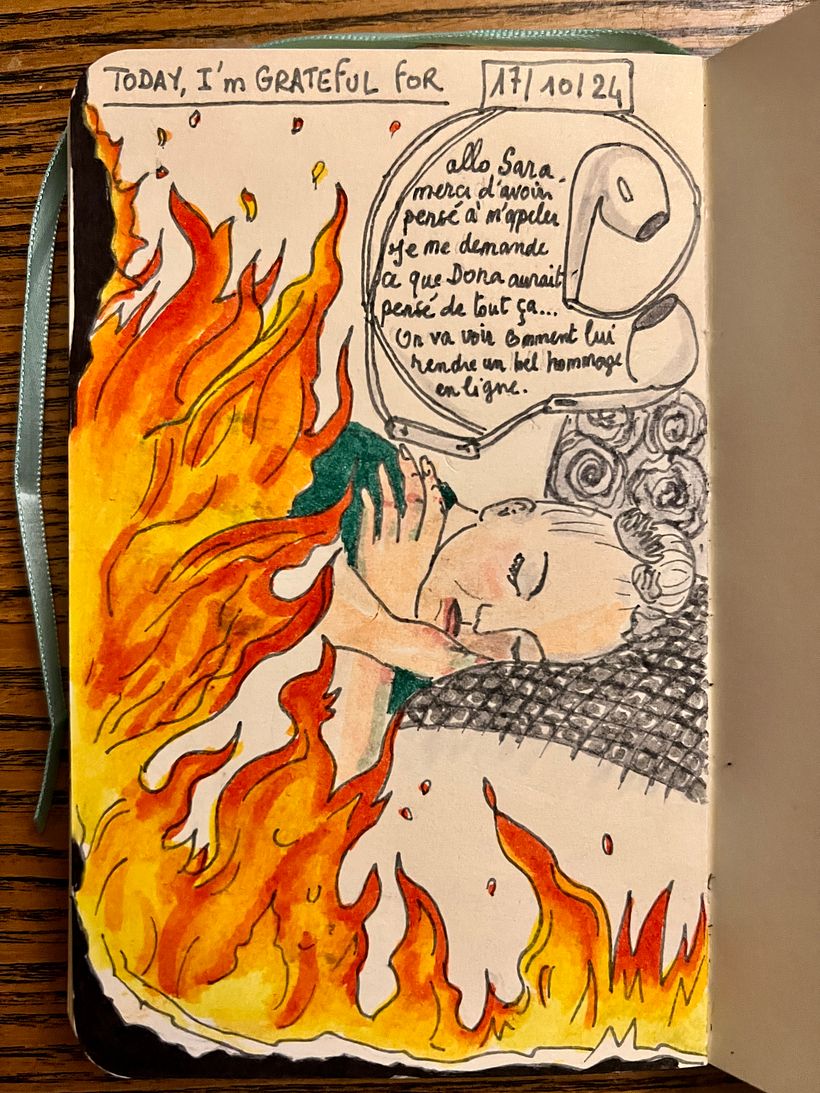 TODAY, I'm GRATEFUL FOR
17/10/24
allo Sara.
merci d'avoir
pensé à m'apeler
Je me demande
ce que Dora aurait
pensé de tout ça...
On va voir comment lui
rendre un bel hommage
en ligne.